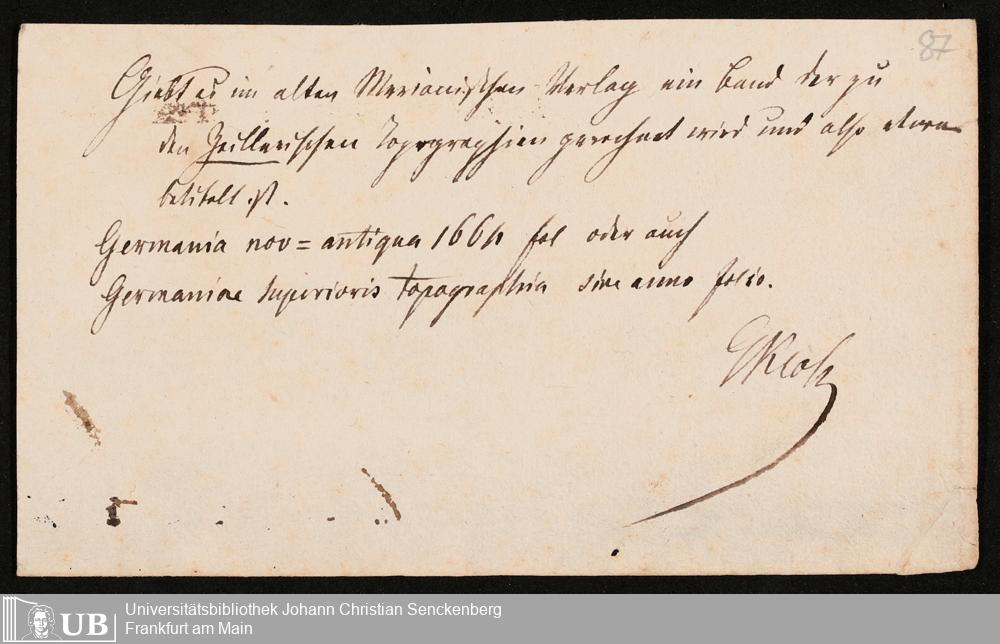 87
Giebt es im alten Merianischen Verlag ein Band der zu
den Zeillerischen Topographien gerechnet wird und also etwa
betitelt ist.
Germania nov=antiqua 1664 fol oder auch
Germaniae superioris topographia sine anno folio.
GKloß
UB
Universitätsbibliothek Johann Christian Senckenberg
Frankfurt am Main